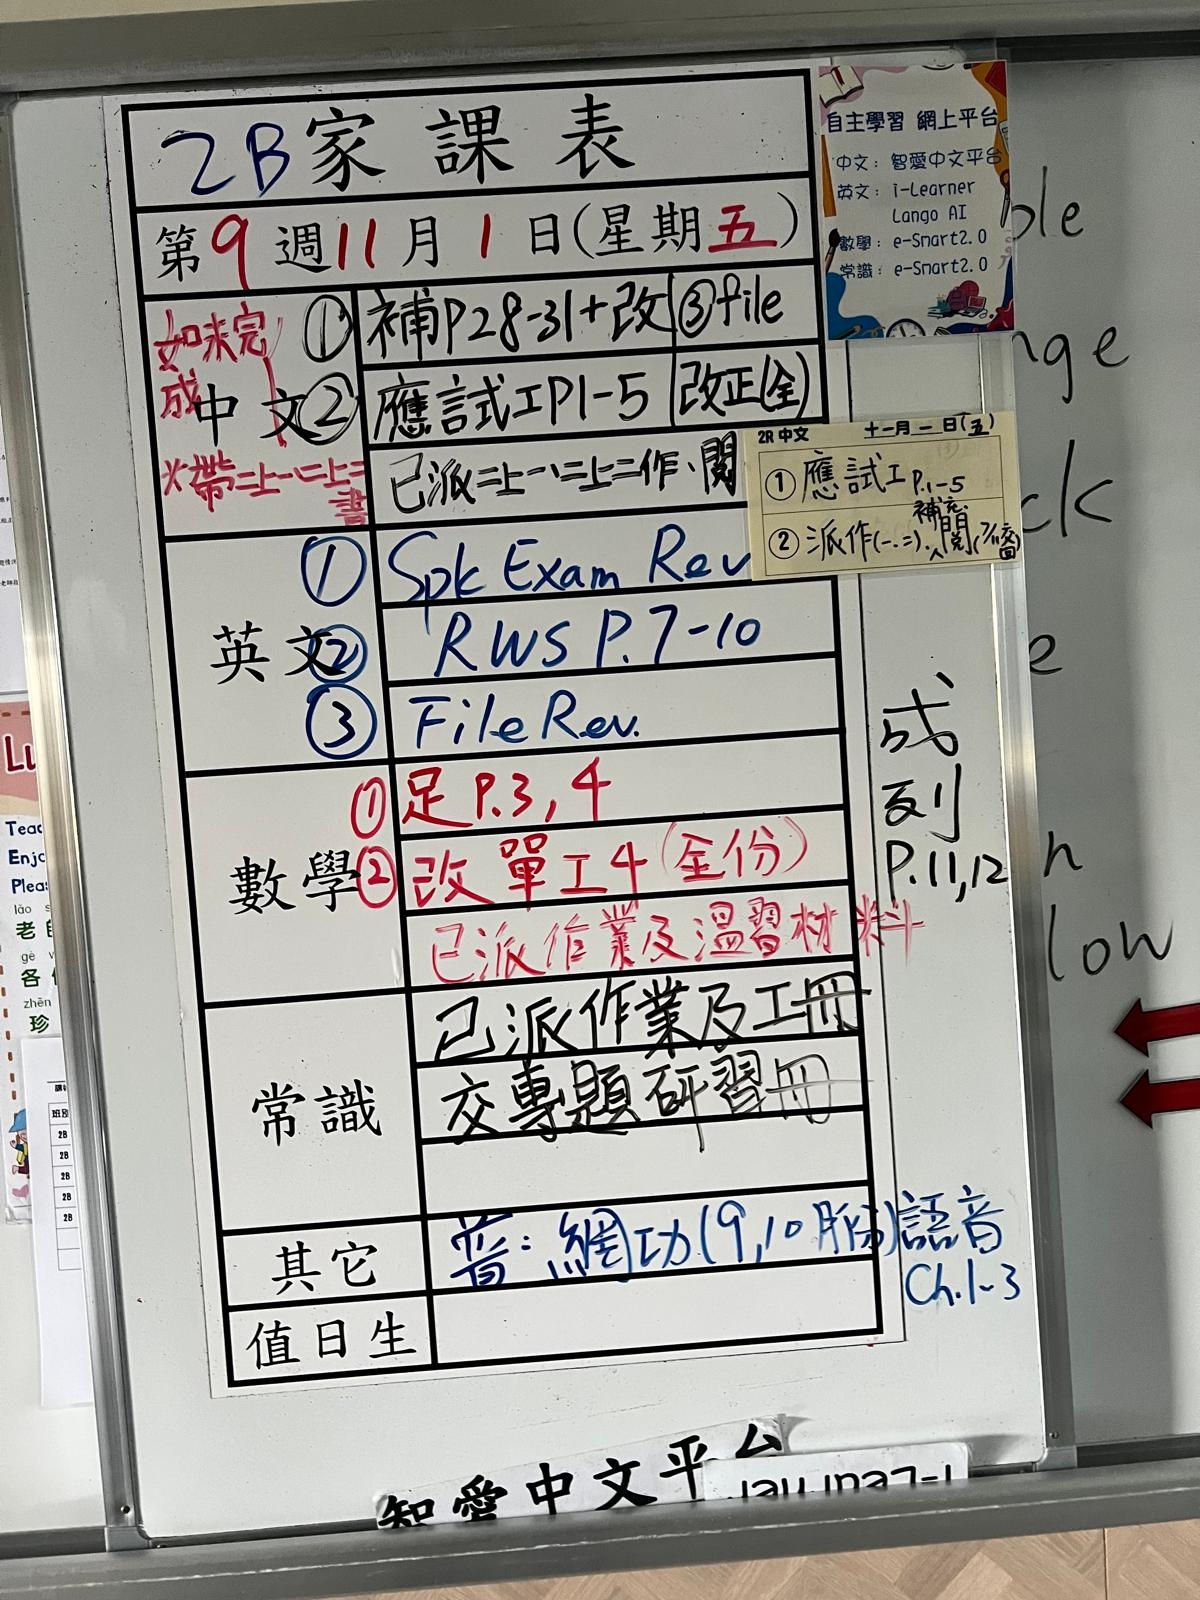 2B家課表
第9週11月1日(星期五)
如未完成
中文
*帶二上一、二上二書
① 補P28-31+改 ③file
② 應試工P1-5 改正(全)
已派二上一、二上二作、閱
英文
① Spk Exam Rev
② RWS P.7-10
③ File Rev.
數學
① 足P.3,4
② 改單工4(全份)
已派作業及溫習材料
常識
已派作業及工冊
交專題研習冊
其它
普:網功(9,10月份)語音
Ch.1-3
值日生
自主學習 網上平台
中文: 智愛中文平台
英文: i-Learner
Lango AI
數學: e-Smart2.0
常識: e-Smart2.0
2R中文 十一月一日(五)
① 應試工P.1-5
② 派作(一.二).補充閱(7/11交回)
成
列
P.11,12
ple
nge
ck
e
n
low
Lu
Teac
Enjo
Pleas
lǎo s
老
gè
各
zhēn
珍
班別
2B
2B
2B
2B
2B
智愛中文平台
i-Learner